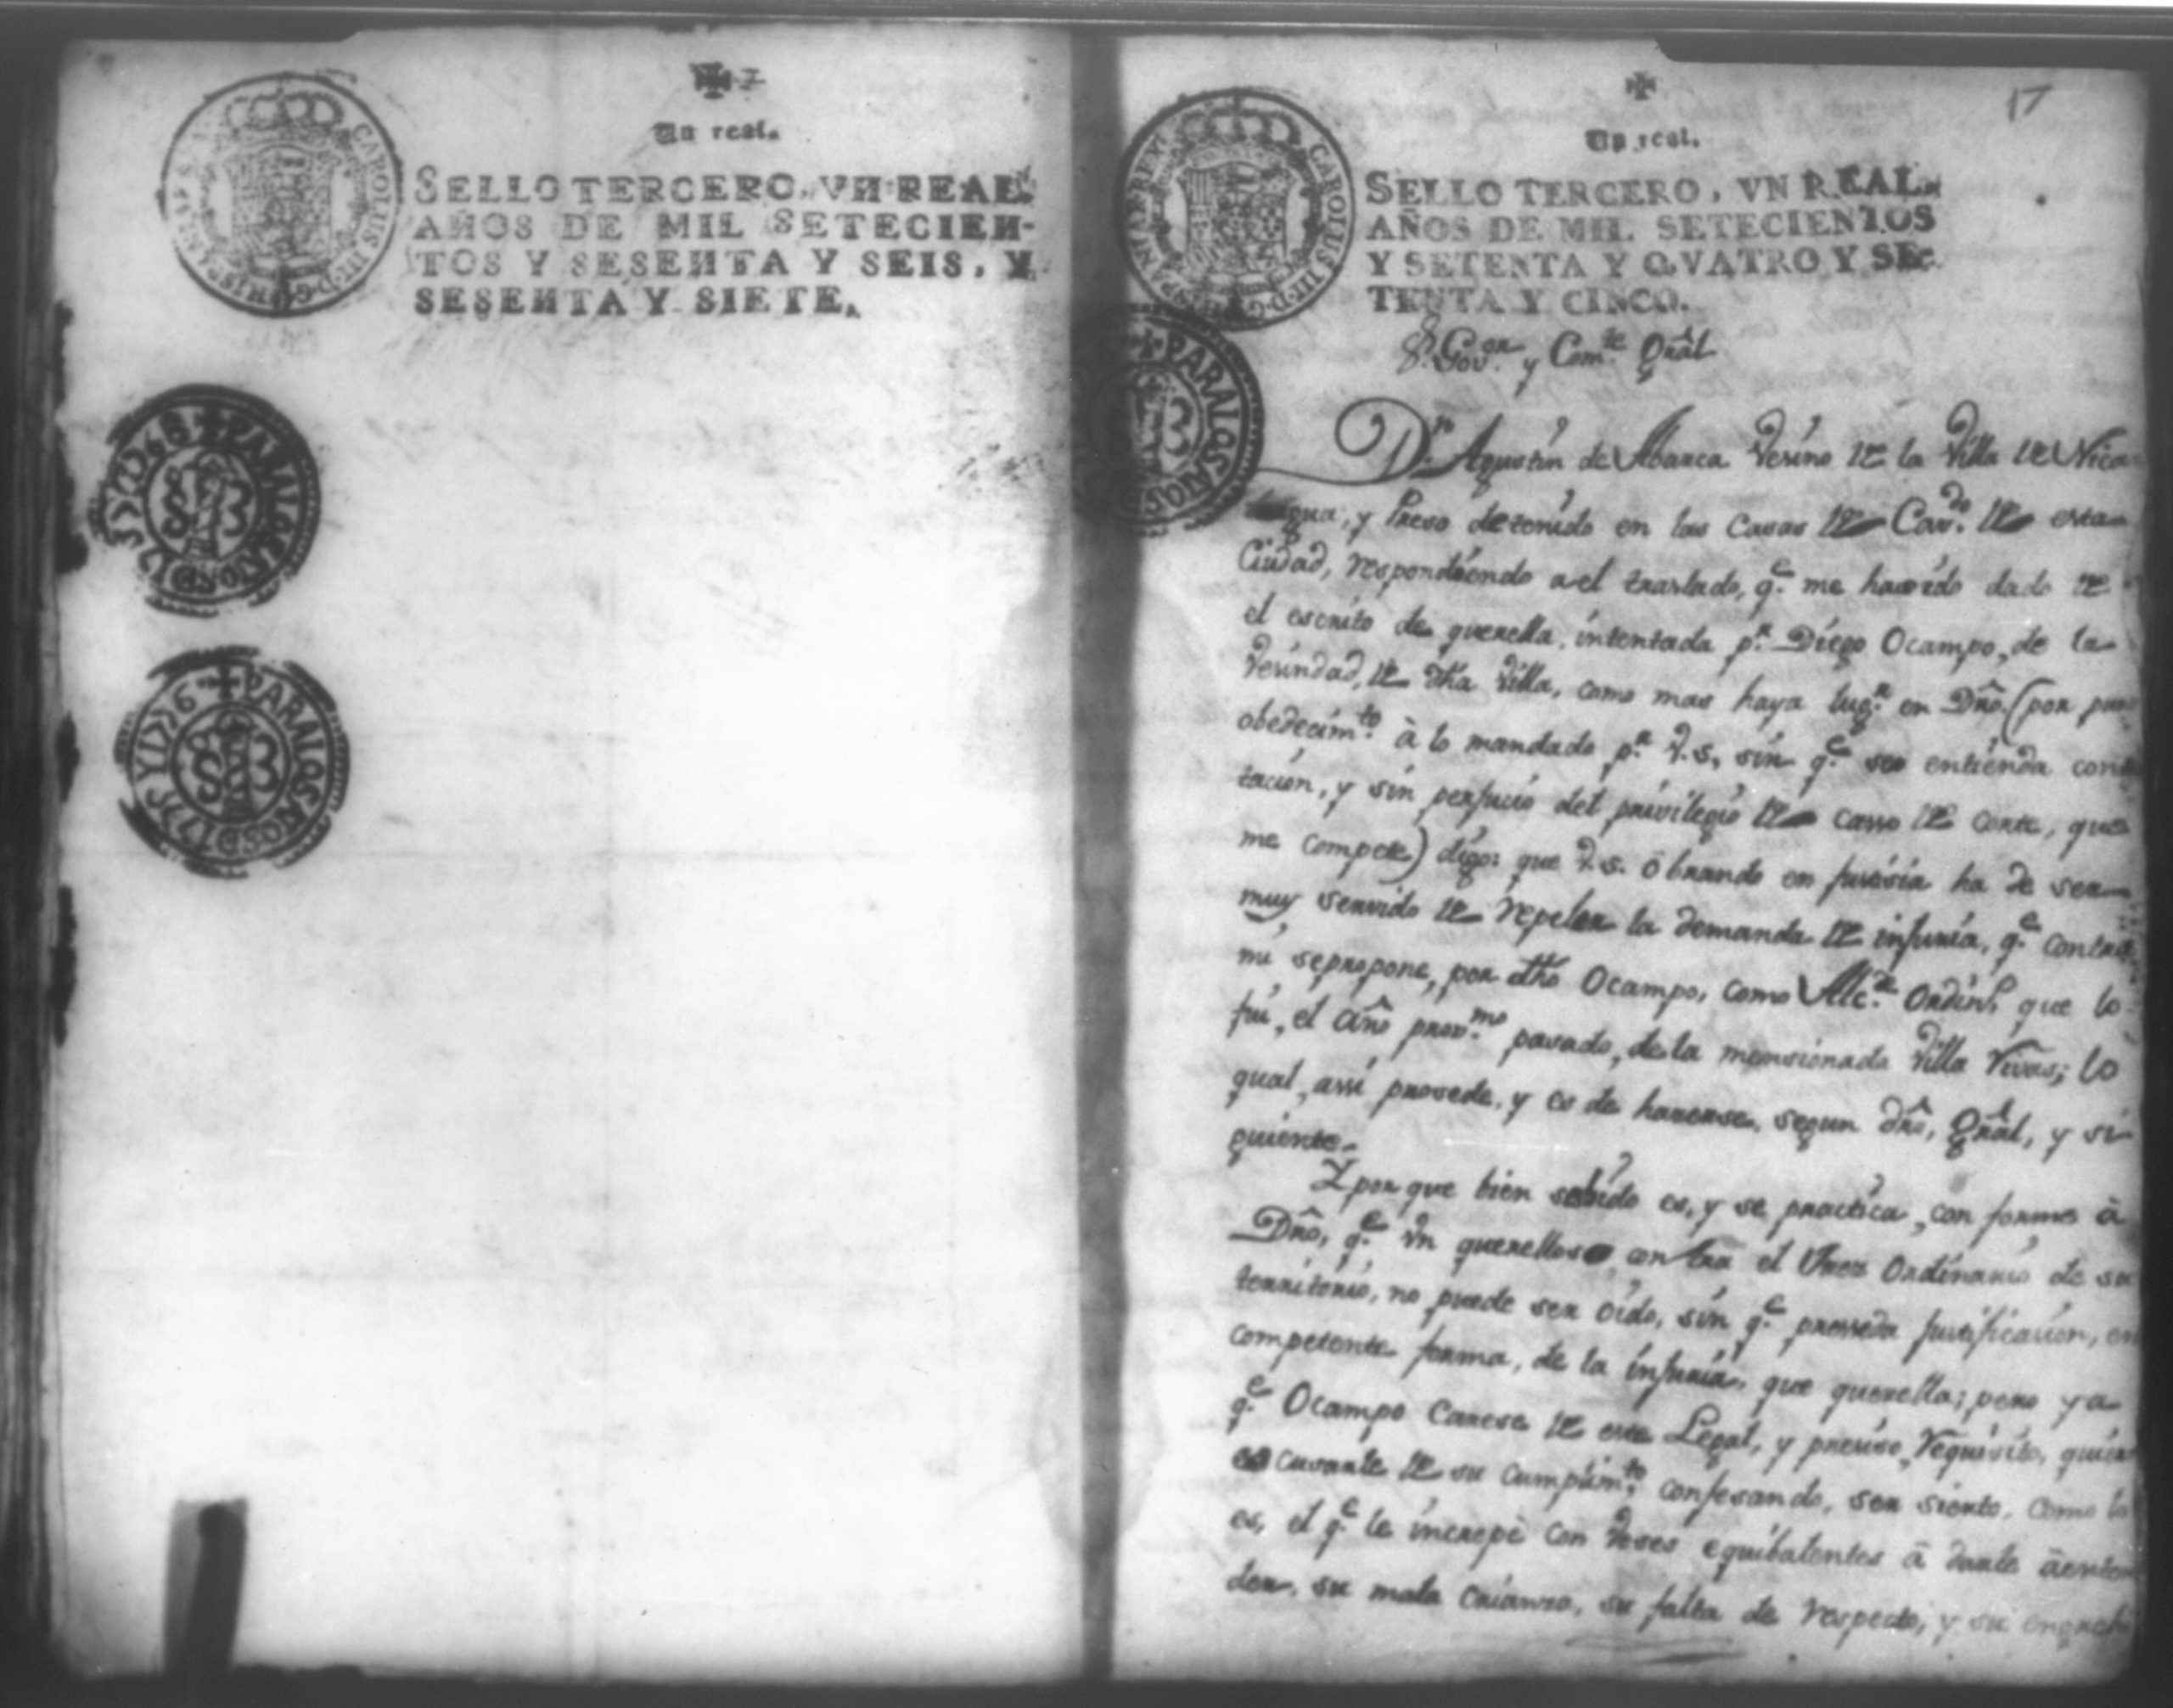 Un real.
SELLO TERCERO, VN REAL
AÑOS DE MIL SETECIEN-
TOS Y SESENTA Y SEIS, Y
SESENTA Y SIETE.
CAROLUS III D G HISPANIAR
PARA LOS AÑOS D 1768
PARA LOS AÑOS D 1775 Y 1776
17
Un real.
SELLO TERCERO, VN REAL
AÑOS DE MIL SETECIENTOS
Y SETENTA Y QVATRO Y SE-
TENTA Y CINCO.
CAROLUS III D G HISPANIAR REX
PARA LOS AÑOS
Sr. Govor. y Comte. Gral
Dn. Agustin de Abarca Vesino de la Villa de Nica-
ragua, y Preso detenido en las Casas de Cavdo. de esta
Ciudad, respondiendo a el traslado, qe. me hasido dado de
el escrito de querella, intentada pr. Diego Ocampo, de la
Vesindad, de dha Villa, como mas haya lugr. en Dro. (por puro
obedecimto. à lo mandado pr. V.S, sin qe. seo entienda contes
tacion, y sin perjucio del privilegio de casso de corte, que
me compete) digo: que V.S. obrando en justisia ha de ser
muy servido de repeler la demanda de injuria, qe. contra
mi sepropone, por dho Ocampo, como Alcde. Ordinro. que lo
fui, el año proxmo. pasado, de la mensionada Villa Rivas; lo
qual, assi prosede, y es de haserse, segun dro, Gral, y si
guiente.
Y por que bien sabido es, y se practica, con forme à
Dro, qe. Vn querelloso contra el Juez Ordinario de su
territorio, no puede ser oido, sin qe. preseda justificacion, en
competente forma, de la injuria, que querella; pero ya
qe. Ocampo Carese de este Legal, y presiso, requisito, quiere
escusarle de su cumplimto. confesando, ser sierto, como lo
es, el qe. le increpè con Voses equibalentes à darle àenten
der, su mala crianza, su falta de respecto, y su